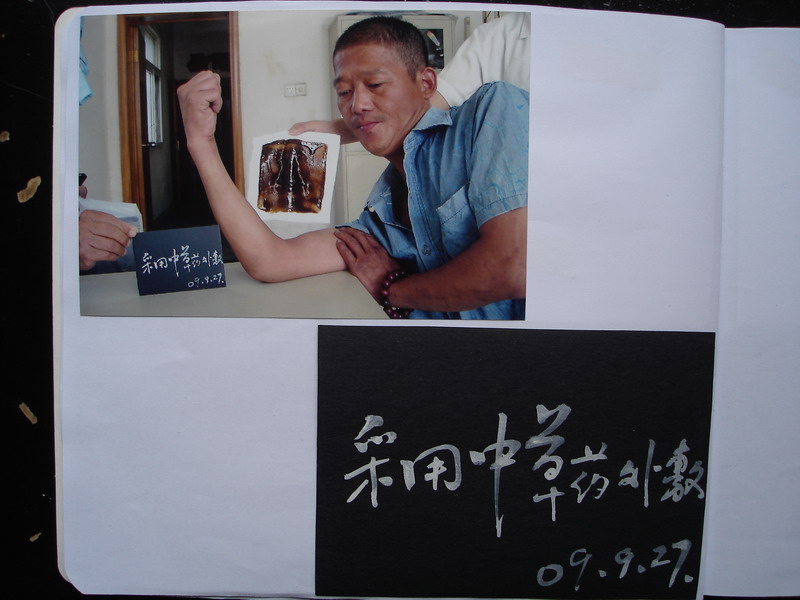 采用中草药外敷
09.9.27.
采用中草药外敷
09.9.27.